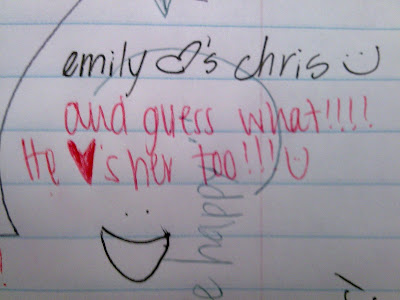 emily ♡'s chris :)
and guess what!!!!
He ♥'s her too!!! :)
happy